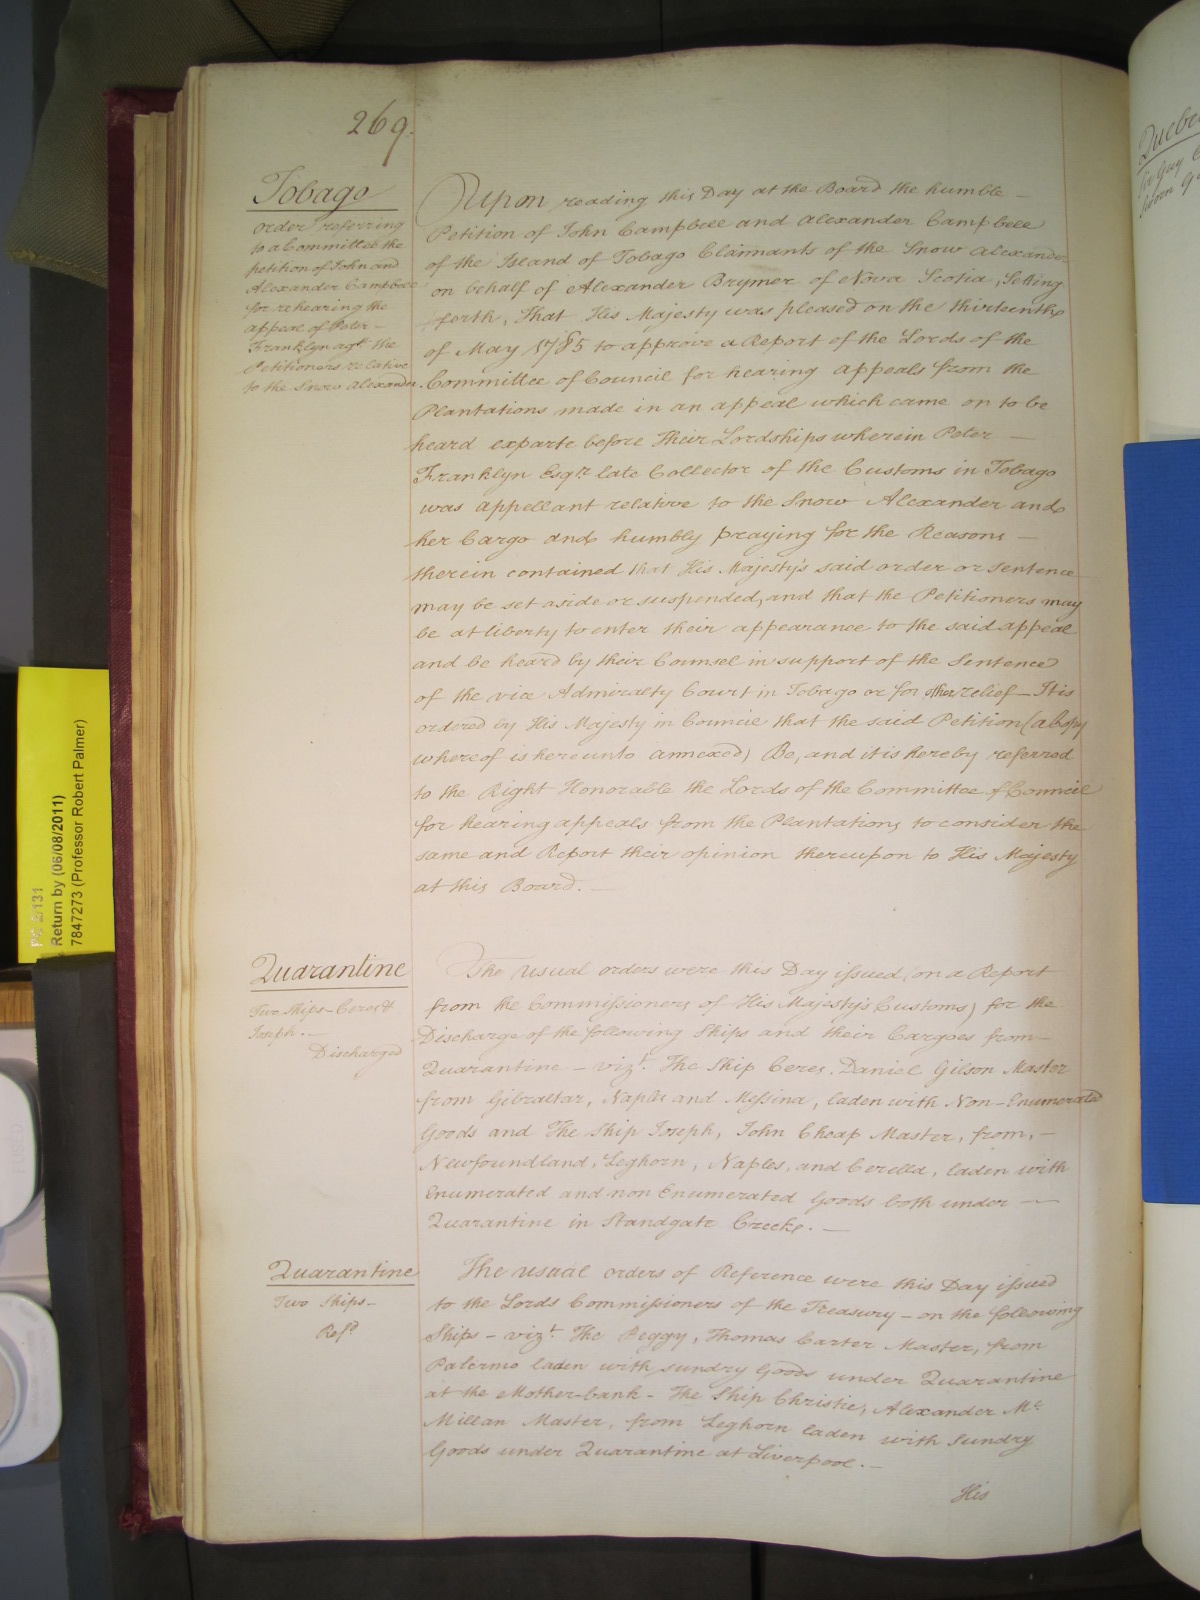 269.
Tobago
order referring
to a Committee the
petition of John and
Alexander Campbell
for rehearing the
appeal of Peter -
Franklyn agt. the
Petitioners relative
to the Snow Alexander.
Upon reading this Day at the Board the humble -
Petition of John Campbell and Alexander Campbell
of the Island of Tobago Claimants of the Snow Alexander
on behalf of Alexander Brymer of Nova Scotia, Setting
forth, That His Majesty was pleased on the thirteenth
of May 1785 to approve a Report of the Lords of the
Committee of Council for hearing appeals from the
Plantations made in an appeal which came on to be
heard exparte before Their Lordships wherein Peter -
Franklyn Esqr. late Collector of the Customs in Tobago
was appellant relative to the Snow Alexander and
her Cargo and humbly praying for the Reasons -
therein contained that His Majesty's said order or sentence
may be set aside or suspended, and that the Petitioners may
be at liberty to enter their appearance to the said appeal
and be heard by their Counsel in support of the Sentence
of the vice Admiralty Court in Tobago or for other relief - It is
ordered by His Majesty in Council that the said Petition (a Copy
whereof is hereunto annexed) Be, and it is hereby referred
to the Right Honorable the Lords of the Committee of Council
for hearing appeals from the Plantations to consider the
same and Report their opinion thereupon to His Majesty
at this Board. -
Quarantine
Two Ships - Ceres &
Joseph. -
Discharged
The usual orders were this Day issued (on a Report
from the Commissioners of His Majesty's Customs) for the
Discharge of the following Ships and their Cargoes from -
Quarantine - vizt. The Ship Ceres, Daniel Gilson Master
from Gibraltar, Naples and Messina, laden with Non-Enumerated
Goods and The Ship Joseph, John Cheap Master, from, -
Newfoundland, Leghorn, Naples, and laden with
Enumerated and non Enumerated Goods both under -
Quarantine in Standgate Creeke. -
Quarantine
Two Ships -
Refd.
The usual orders of Reference were this Day issued
to the Lords Commissioners of the Treasury - on the following
Ships - vizt. The Peggy, Thomas Carter Master, from
Palermo laden with sundry Goods under Quarantine
at the Mother-bank - The Ship Christie, Alexander Mc.
Millan Master, from Leghorn laden with Sundry
Goods under Quarantine at Liverpool. -
His
PC 2/131
Return by (06/08/2011)
7847273 (Professor Robert Palmer)